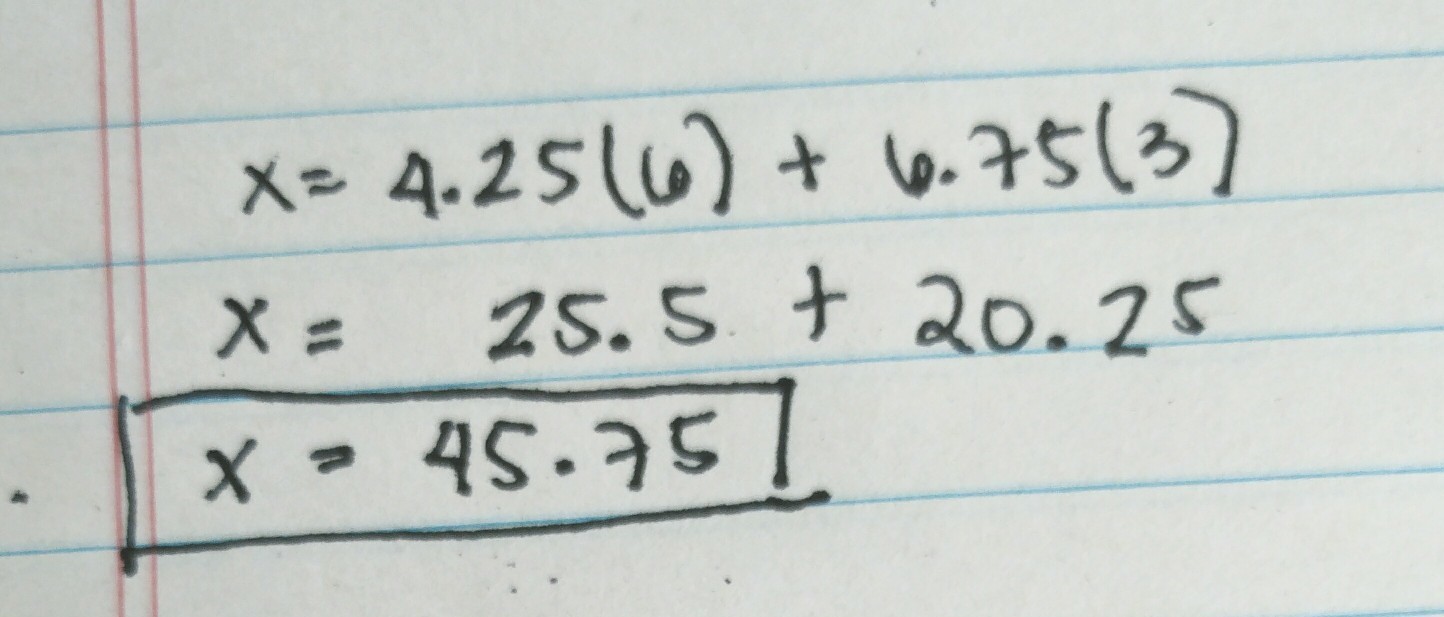 x= 4.25(6) + 6.75(3)
x= 25.5 + 20.25
x = 45.75